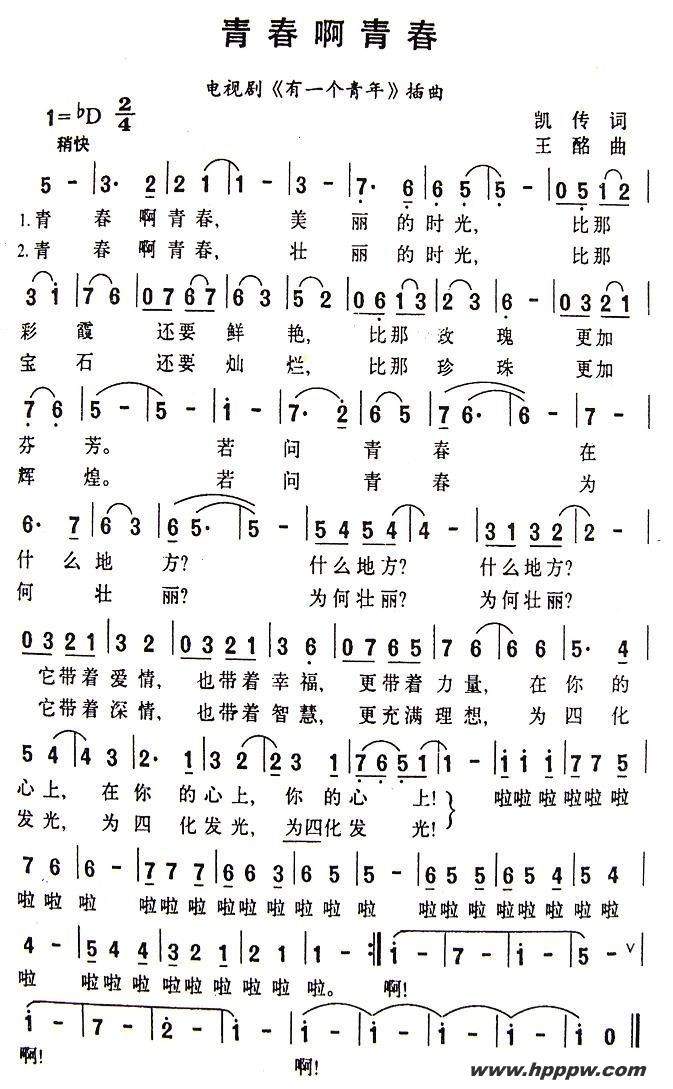 青春啊青春
电视剧《有一个青年》插曲
1=♭D 2/4
凯传词
稍快
王酩曲
5 - | 3· 2 | 2 2 1 | 1 - | 3 - | 7· 6 | 6 5 | 5 - | 0 5 1 2 |
1.青 春 啊青春, 美 丽 的时光, 比那
2.青 春 啊青春, 壮 丽 的时光, 比那
3 i | 7 6 | 0 7 6 7 | 6 3 | 5 2 | 0 6 1 3 | 2 3 | 6 - | 0 3 2 1 |
彩 霞 还要 鲜 艳, 比那 玫 瑰 更加
宝 石 还要 灿 烂, 比那 珍 珠 更加
7 6 | 5 - | 5 - | i - | 7· 2 | 6 5 | 7 6· | 6 - | 7 - |
芬 芳。 若 问 青 春 在
辉 煌。 若 问 青 春 为
6· 7 | 6 3 | 6 5· | 5 - | 5 4 5 4 | 4 - | 3 1 3 2 | 2 - |
什 么 地 方? 什么地方? 什么地方?
何 壮 丽? 为何壮丽? 为何壮丽?
0 3 2 1 | 3 2 | 0 3 2 1 | 3 6 | 0 7 6 5 | 7 6 | 6 6 | 5· 4 |
它带着 爱情, 也带着 幸福, 更带着 力量, 在 你 的
它带着 深情, 也带着 智慧, 更充满 理想, 为 四 化
5 4 | 4 3 | 2· 1 | 3 2 | 2 3 | 1 7 6 5 1 | 1 - | i i i | 7 7 5 |
心上, 在 你 的心上, 你 的 心 上! 啦啦 啦 啦啦 啦
发光, 为 四 化发光, 为四化发 光!
7 6 | 6 - | 7 7 7 | 6 6 3 | 6 5 | 5 - | 6 5 5 | 6 5 4 | 5 4 |
啦 啦 啦 啦啦 啦 啦啦 啦 啦 啦 啦 啦啦 啦 啦啦 啦 啦 啦
4 - | 5 4 4 | 3 2 1 | 2 1 | 1 - :‖ i - | 7 - | i - | 5 - ∨ |
啦 啦啦 啦 啦啦 啦 啦 啦 啦。 啊!
i - | 7 - | 2 - | i - | i - | i - | i - | i 0 ‖
啊! 啊!
www.hpppw.com